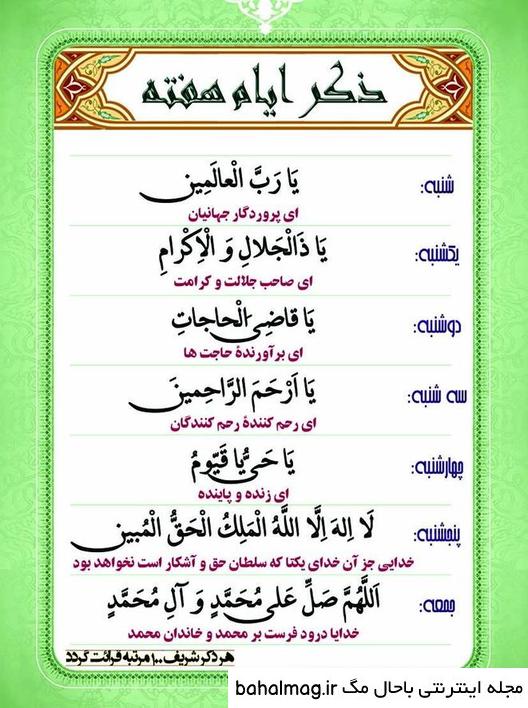 ذکر ایام هفته
شنبه: یَا رَبَّ الْعالَمِین
ای پروردگار جهانیان
یکشنبه: یَا ذَالْجَلالِ وَ الْاِکْرامِ
ای صاحب جلالت و کرامت
دوشنبه: یَا قاضِیَ الْحاجاتِ
ای برآورندهٔ حاجت ها
سه شنبه: یَا اَرْحَمَ الرَّاحِمینَ
ای رحم کنندهٔ رحم کنندگان
چهارشنبه: یَا حَیُّ یَا قَیّومُ
ای زنده و پاینده
پنجشنبه: لَا اِلهَ اِلَّا اللَّهُ الْمَلِكُ الْحَقُّ الْمُبین
خدایی جز آن خدای یکتا که سلطان حق و آشکار است نخواهد بود
جمعه: اَللَّهُمَّ صَلِّ عَلی مُحَمَّدٍ وَ آلِ مُحَمَّدٍ
خدایا درود فرست بر محمد و خاندان محمد
هر ذکر شریف ۱۰۰ مرتبه قرائت گردد
مجله اینترنتی باحال مگ bahalmag.ir